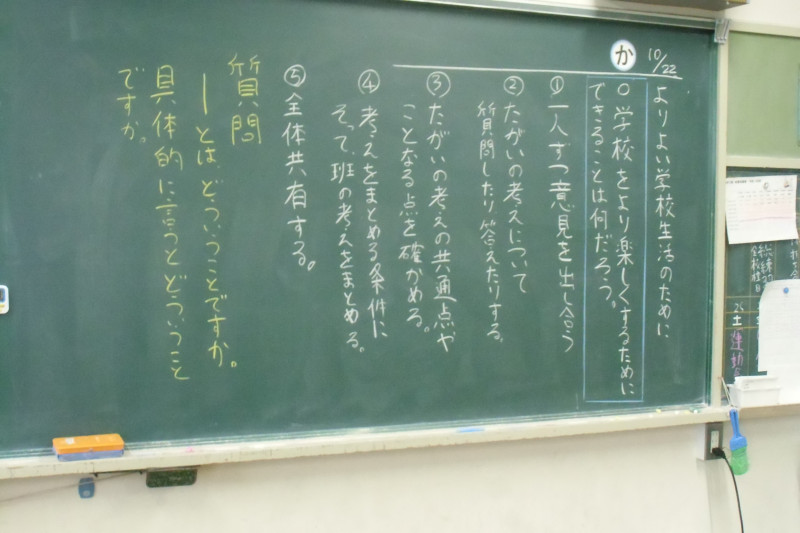 10/22
よりよい学校生活のために
か
○学校をより楽しくするために
できることは何だろう。
① 一人ずつ意見を出し合う
② たがいの考えについて
質問したり答えたりする。
③ たがいの考えの共通点や
ことなる点を確かめる。
④ 考えをまとめる条件に
そって、班の考えをまとめる。
⑤ 全体共有する。
質問
ーとは、どういうことですか。
具体的に言うとどういうこと
ですか。
土
運動